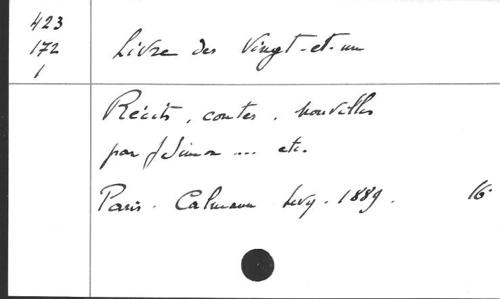 423
172
1
Livre des Vingt-et-un
Récits, contes, nouvelles
par J Simon ... etc.
Paris. Calmann Levy. 1889. 16°